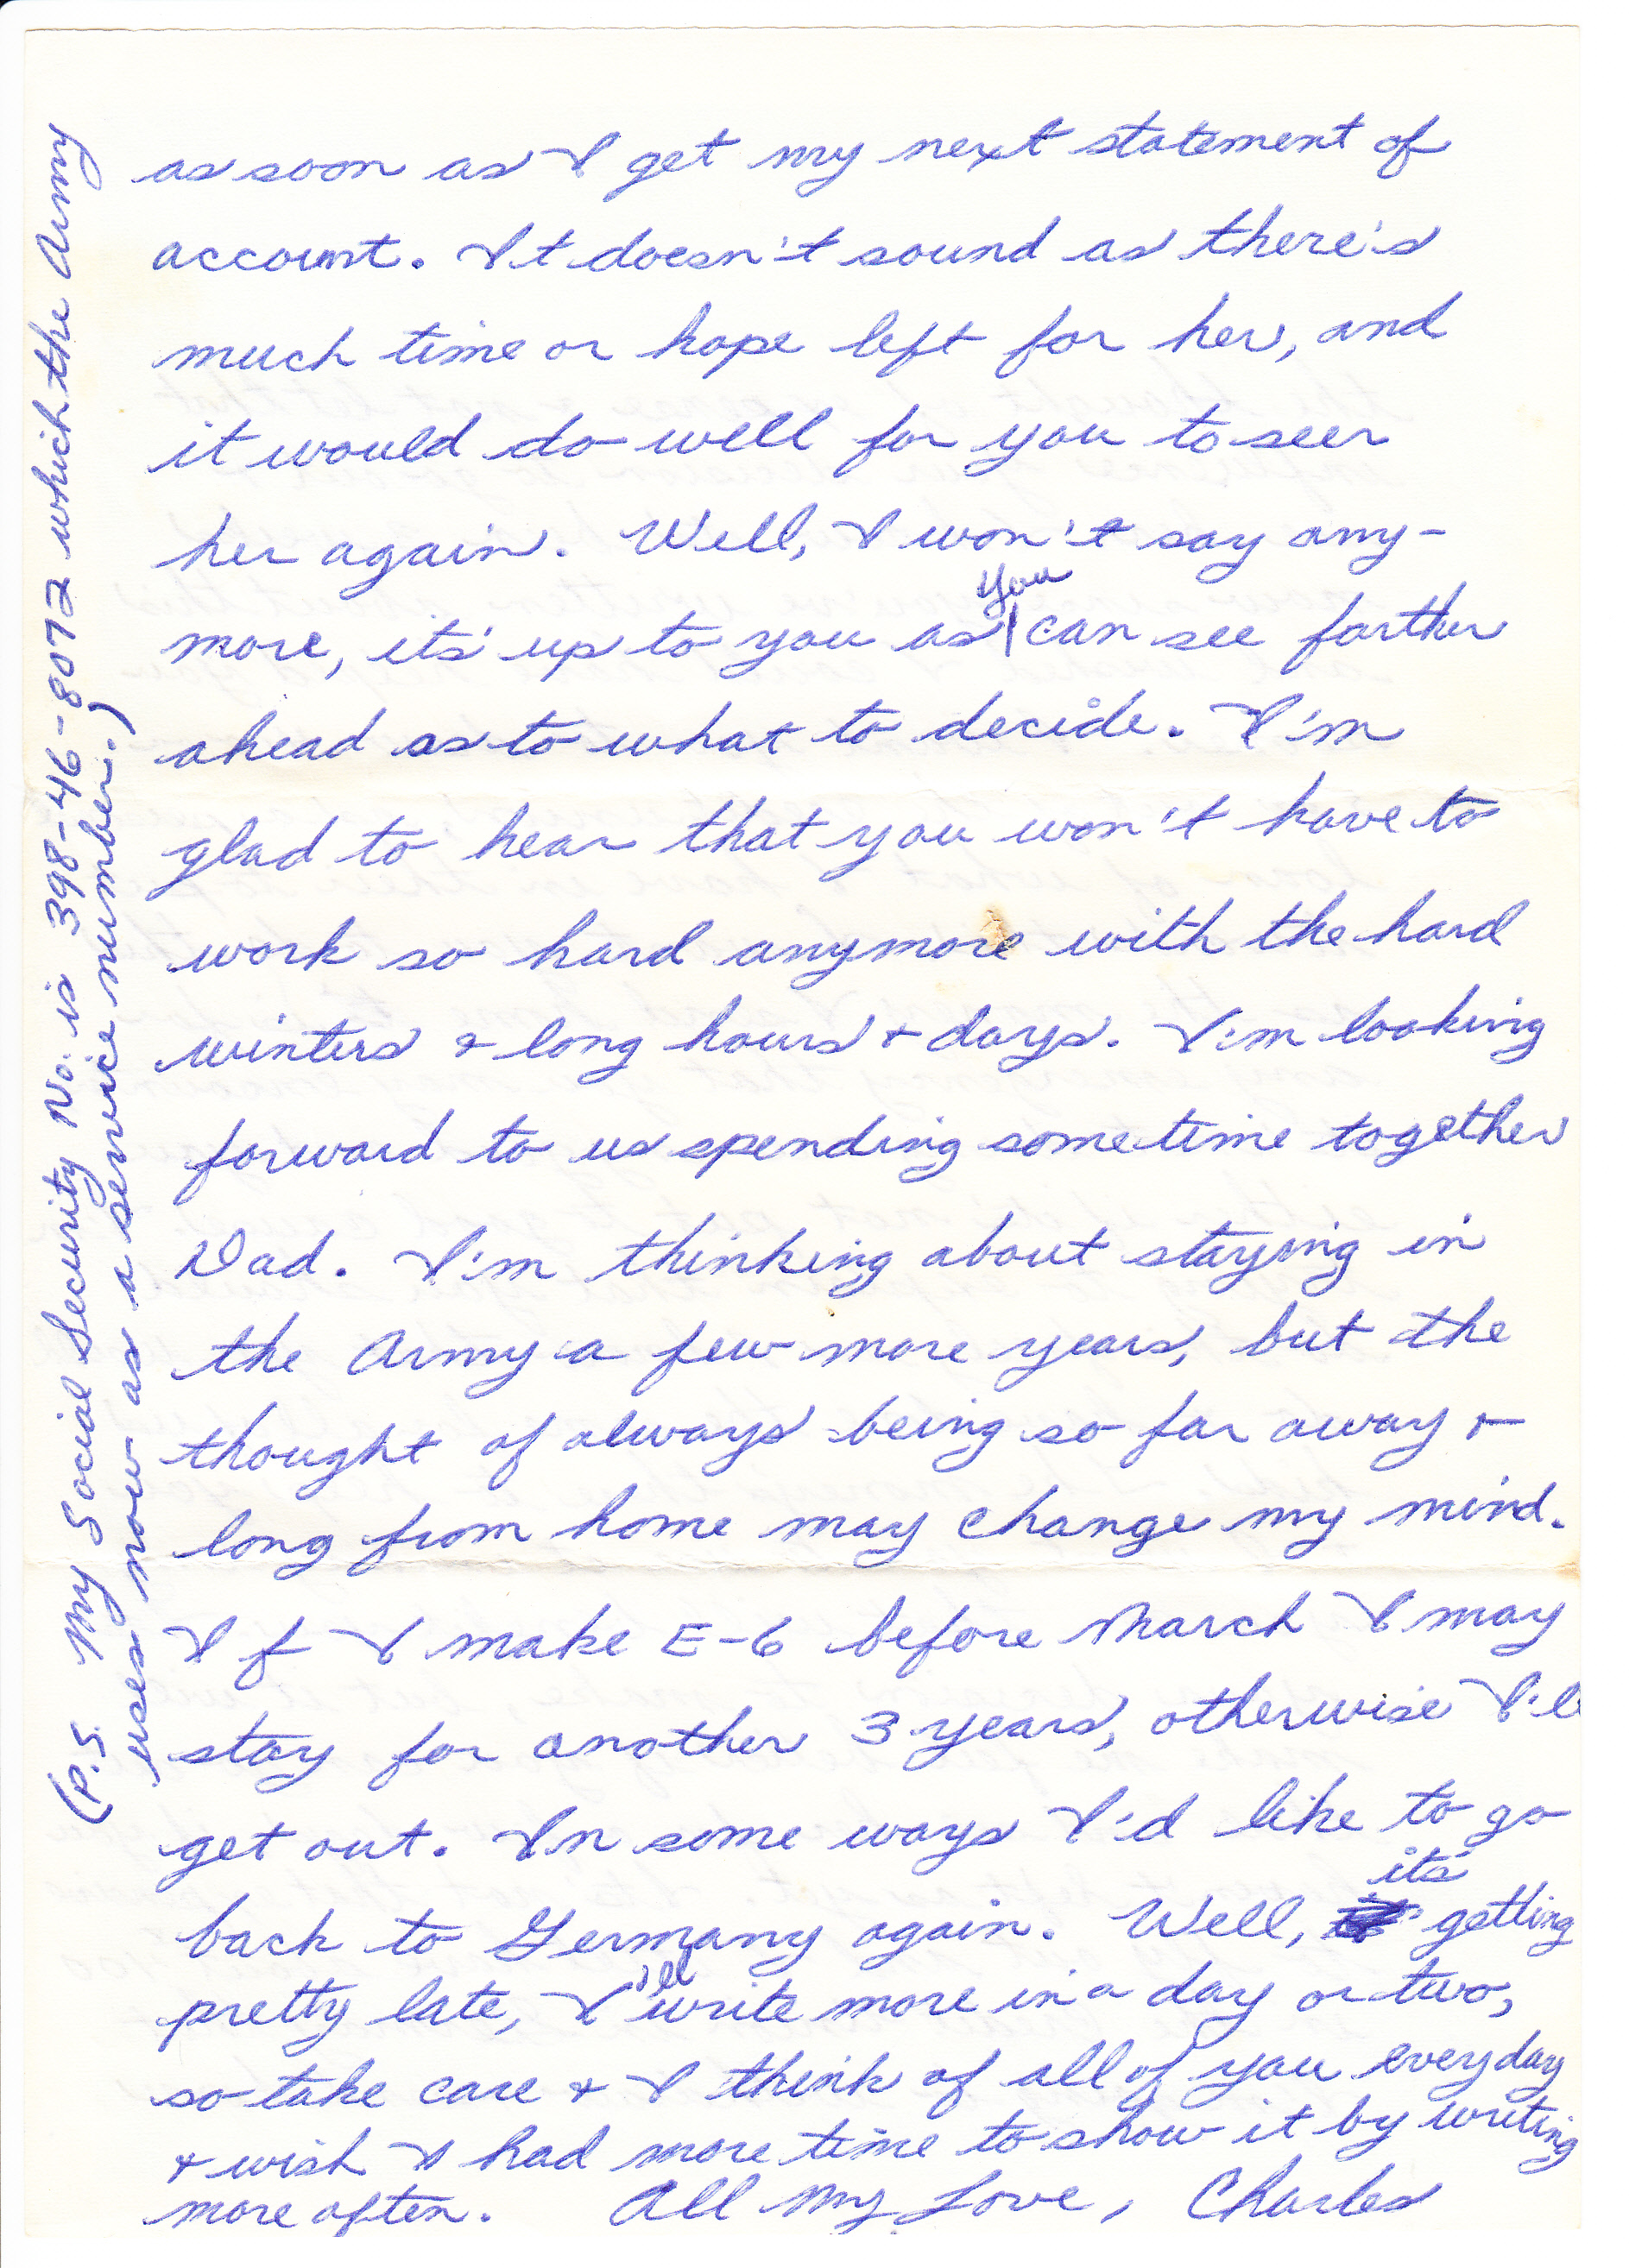 as soon as I get my next statement of
account. It doesn't sound as there's
much time or hope left for her, and
it would do well for you to seer
her again. Well, I won't say any-
more, its' up to you as you can see farther
ahead as to what to decide. I'm
glad to hear that you won't have to
work so hard anymore with the hard
winters & long hours & days. I'm looking
forward to us spending sometime together
Dad. I'm thinking about staying in
the Army a few more years, but the
thought of always being so far away &
long from home may change my mind.
If I make E-6 before March I may
stay for another 3 years, otherwise I'll
get out. In some ways I'd like to go
back to Germany again. Well, its' getting
pretty late, I'll write more in a day or two,
so take care & I think of all of you everyday
& wish I had more time to show it by writing
more often. All My Love, Charles
(P.S. My Social Security No. is 398-46-8072 which the Army
uses now as a service number.)